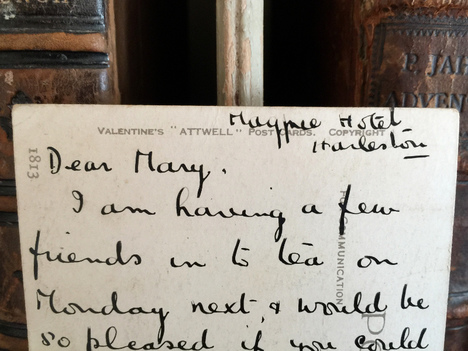 Magpie Hotel
VALENTINE'S "ATTWELL" POST CARDS. COPYRIGHT
Harleston
1813
Dear Mary.
I am having a few
friends in to tea on
Monday next, & would be
so pleased if you could
COMMUNICATION
P. JA
ADVEN